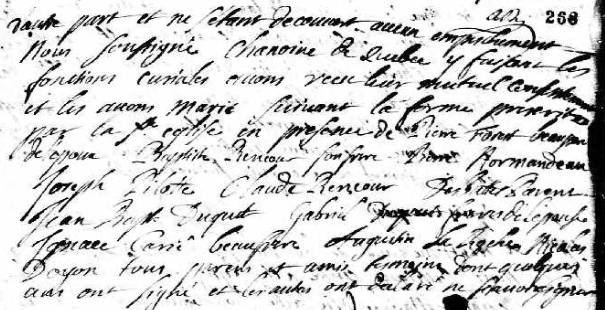 dautre part et ne sétant decouvert aucun empeschement
268
Nous soussigné Chanoine de Quebec y faisant les
fonctions curiales avons receu leur mutuel consentement
et les avons Marié suivant la forme prescrite
par la Ste eglise en presence de Pierre beaupere
de epoux Baptiste Rencour son frere Normandeau
Joseph Pilote Claude Rencour Parent
Jean Bapt Duquet Gabriel freres de lepouse
Ignace Carié beaufrere Augustin la Nicolas
Doyon tous parens et amis temoins dont quelques
uns ont signé et les autres ont declaré ne scavoir signer